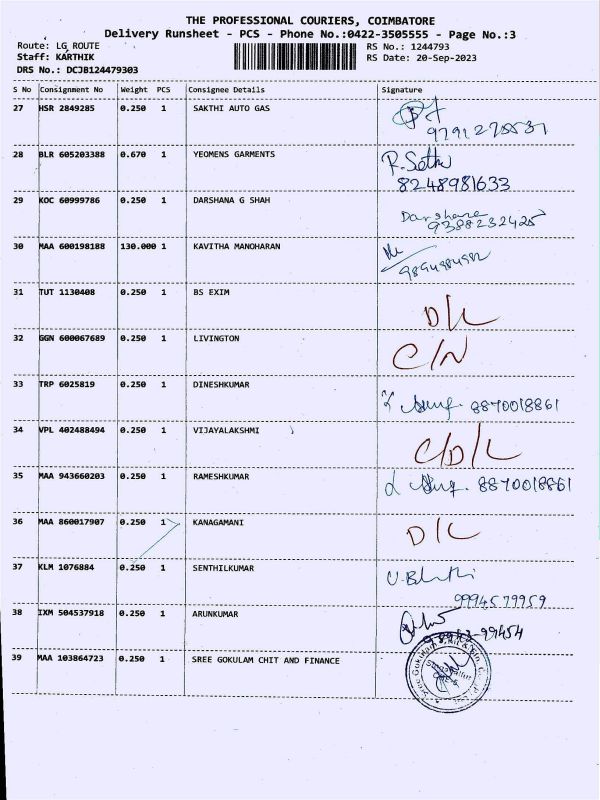 THE PROFESSIONAL COURIERS, COIMBATORE
Delivery Runsheet - PCS - Phone No.:0422-3505555 - Page No.:3
Route: LG ROUTE RS No.: 1244793
Staff: KARTHIK RS Date: 20-Sep-2023
DRS No.: DCJB124479303
S No Consignment No Weight PCS Consignee Details Signature
27 HSR 2849285 0.250 1 SAKTHI AUTO GAS
28 BLR 605203388 0.670 1 YEOMENS GARMENTS R. Sethu
8248981633
29 KOC 60999786 0.250 1 DARSHANA G SHAH Darshana
9388232425
30 MAA 600198188 130.000 1 KAVITHA MANOHARAN
31 TUT 1130408 0.250 1 BS EXIM D/L
32 GGN 600067689 0.250 1 LIVINGTON C/N
33 TRP 6025819 0.250 1 DINESHKUMAR 8870018861
34 VPL 402488494 0.250 1 VIJAYALAKSHMI C/D/L
35 MAA 943660203 0.250 1 RAMESHKUMAR 8870018861
36 MAA 860017907 0.250 1 KANAGAMANI D/L
37 KLM 1076884 0.250 1 SENTHILKUMAR
9994579959
38 IXM 504537918 0.250 1 ARUNKUMAR
39 MAA 103864723 0.250 1 SREE GOKULAM CHIT AND FINANCE